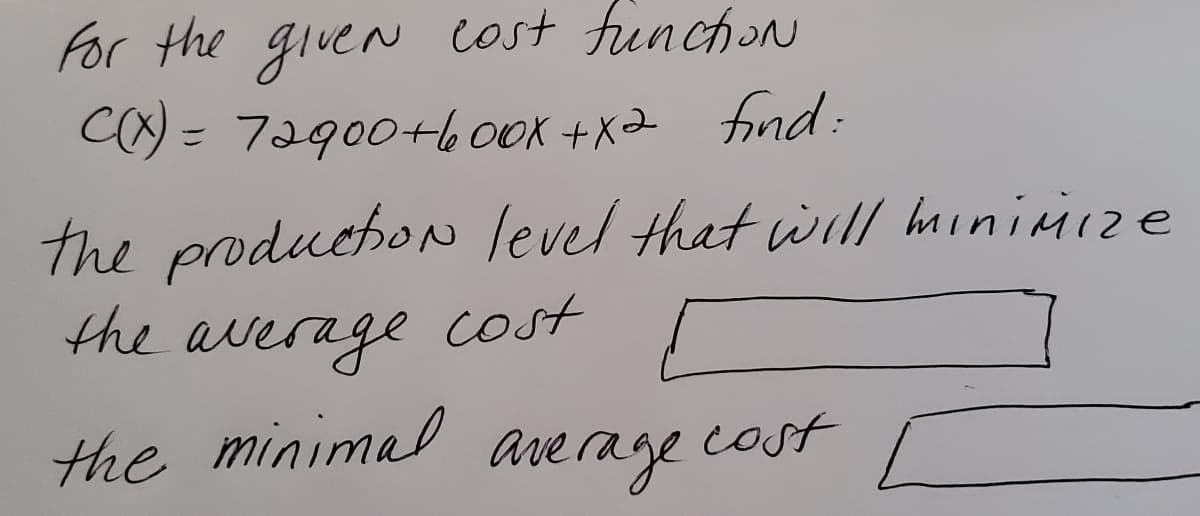 For the given cost function
C(X) = 72900+600X+X2 find:
the production level that will minimize
the average cost
the minimal average cost